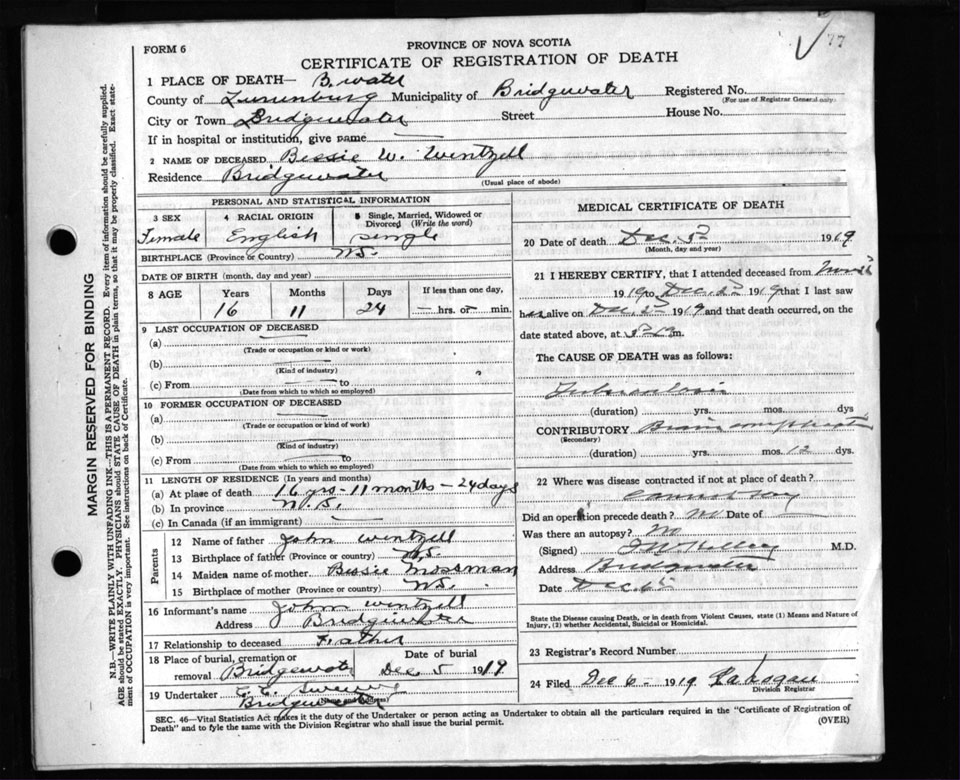 77
FORM 6
PROVINCE OF NOVA SCOTIA
CERTIFICATE OF REGISTRATION OF DEATH
1 PLACE OF DEATH— B.water
County of Lunenburg Municipality of Bridgewater Registered No.
(For use of Registrar General only.)
City or Town Bridgewater Street House No.
If in hospital or institution, give name —
2 NAME OF DECEASED Bessie W. Wentzell
Residence Bridgewater
(Usual place of abode)
PERSONAL AND STATISTICAL INFORMATION
3 SEX 4 RACIAL ORIGIN 5 Single, Married, Widowed or Divorced (Write the word)
Female English Single
BIRTHPLACE (Province or Country) N.S.
DATE OF BIRTH (month, day and year)
8 AGE Years Months Days If less than one day,
16 11 24 — hrs. or — min.
9 LAST OCCUPATION OF DECEASED
(a) —
(Trade or occupation or kind or work)
(b) —
(Kind of industry)
(c) From — to
(Date from which to which so employed)
10 FORMER OCCUPATION OF DECEASED
(a) —
(Trade or occupation or kind of work)
(b) —
(Kind of industry)
(c) From — to
(Date from which to which so employed)
11 LENGTH OF RESIDENCE (In years and months)
(a) At place of death 16 yrs - 11 months - 24 days
(b) In province N.S.
(c) In Canada (if an immigrant) —
Parents
12 Name of father John Wentzell
13 Birthplace of father (Province or country) N.S.
14 Maiden name of mother Bessie Mossman
15 Birthplace of mother (Province or country) N.S.
16 Informant's name John Wentzell
Address Bridgewater
17 Relationship to deceased Father
18 Place of burial, cremation or removal Bridgewater Date of burial Dec 5 1919
19 Undertaker
(Name and Address) Bridgewater
MEDICAL CERTIFICATE OF DEATH
20 Date of death Dec. 1919
(Month, day and year)
21 I HEREBY CERTIFY, that I attended deceased from
1919 to Dec. 1919 that I last saw
alive on Dec. 1919 and that death occurred, on the
date stated above, at m.
The CAUSE OF DEATH was as follows:
Tuberculosis
(duration) yrs. mos. dys
CONTRIBUTORY Brain
(Secondary)
(duration) yrs. mos. 12 dys.
22 Where was disease contracted if not at place of death?
Cannot say
Did an operation precede death? No Date of —
Was there an autopsy? No
(Signed) M.D.
Address Bridgewater
Date Dec 6
State the Disease causing Death, or in death from Violent Causes, state (1) Means and Nature of
Injury, (2) whether Accidental, Suicidal or Homicidal.
23 Registrar's Record Number
24 Filed Dec 6 - 1919
Division Registrar
SEC. 46—Vital Statistics Act makes it the duty of the Undertaker or person acting as Undertaker to obtain all the particulars required in the "Certificate of Registration of
Death" and to fyle the same with the Division Registrar who shall issue the burial permit. (OVER)
MARGIN RESERVED FOR BINDING
N.B.—WRITE PLAINLY WITH UNFADING INK—THIS IS A PERMANENT RECORD. Every item of information should be carefully supplied.
AGE should be stated EXACTLY. PHYSICIANS should STATE CAUSE OF DEATH in plain terms, so that it may be properly classified. Exact state-
ment of OCCUPATION is very important. See instructions on back of Certificate.